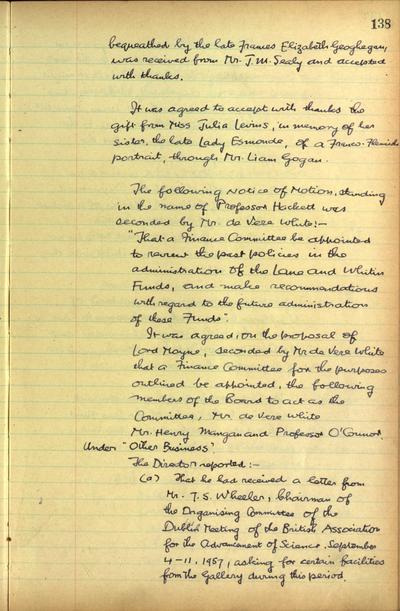 138
bequeathed by the late Frances Elizabeth Geoghegan,
was received from Mr. J.M. Sealy and accepted
with thanks.
It was agreed to accept with thanks the
gift from Miss Julia Levins, in memory of her
sister, the late Lady Esmonde, of a Franco-Flemish
portrait, through Mr. Liam Gogan.
The following Notice of Motion, standing
in the name of Professor Hackett was
seconded by Mr. de Vere White:-
"That a Finance Committee be appointed
to review the past policies in the
administration of the Lane and Whitin
Funds, and make recommendations
with regard to the future administration
of these Funds".
It was agreed, on the proposal of
Lord Moyne, seconded by Mr de Vere White
that a Finance Committee for the purposes
outlined be appointed, the following
members of the Board to act as the
Committee, Mr. de Vere White
Mr. Henry Mangan and Professor O'Connor.
Under "Other Business".
The Director reported:-
(a) That he had received a letter from
Mr. T.S. Wheeler, Chairman of
the Organising Committee of the
Dublin Meeting of the British Association
for the Advancement of Science, September
4-11, 1957, asking for certain facilities
from the Gallery during this period.